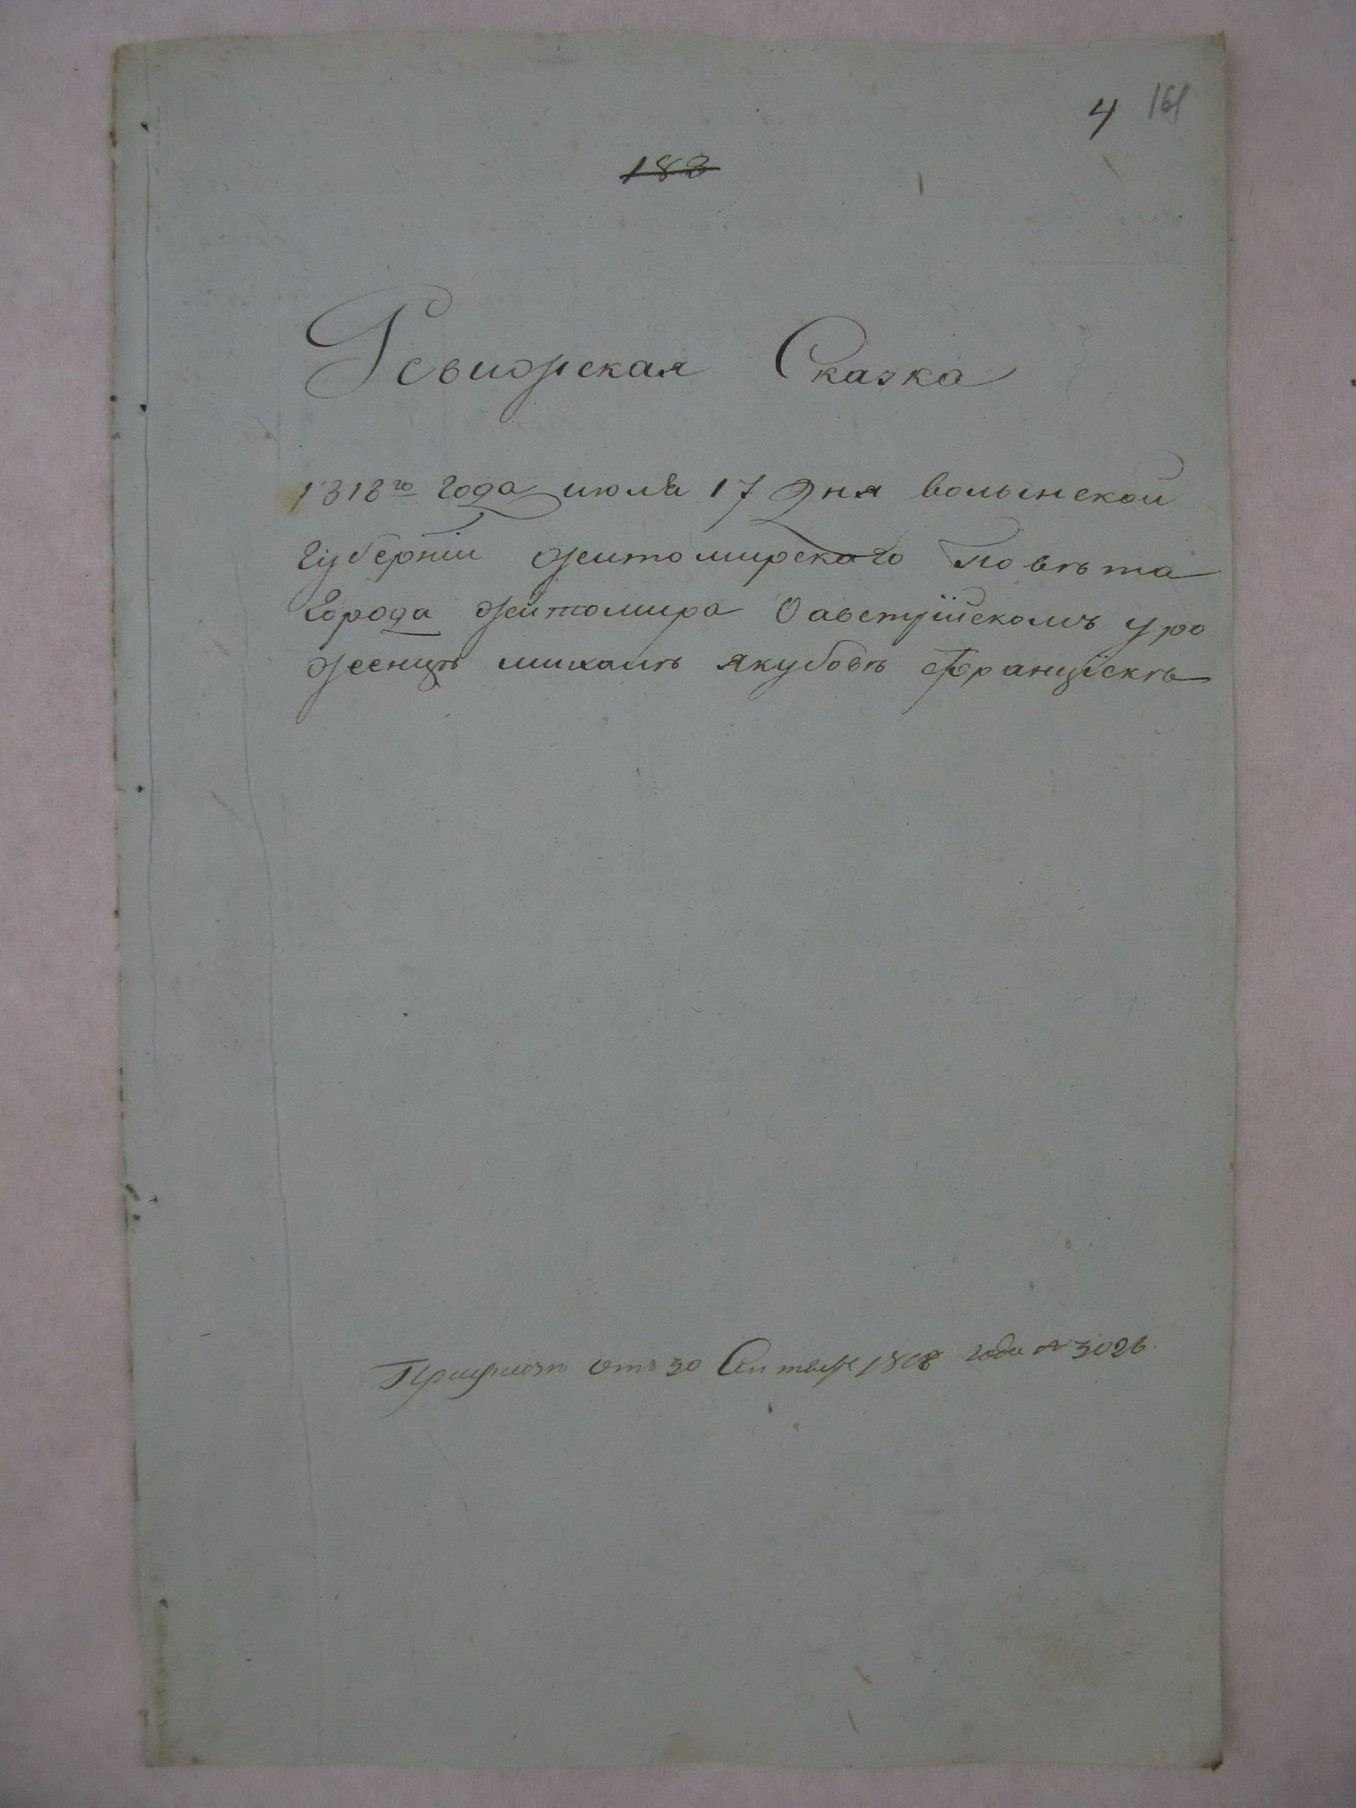 4 161
182
Ревизская Сказка
1818го года июля 17 дня волынской
Губерніи житомирского повѣта
Города житомира О австрїйскомъ уро
женцѣ михаилѣ якубовѣ францїскѣ
отъ 30 Сентябр 1818 года № 3026.